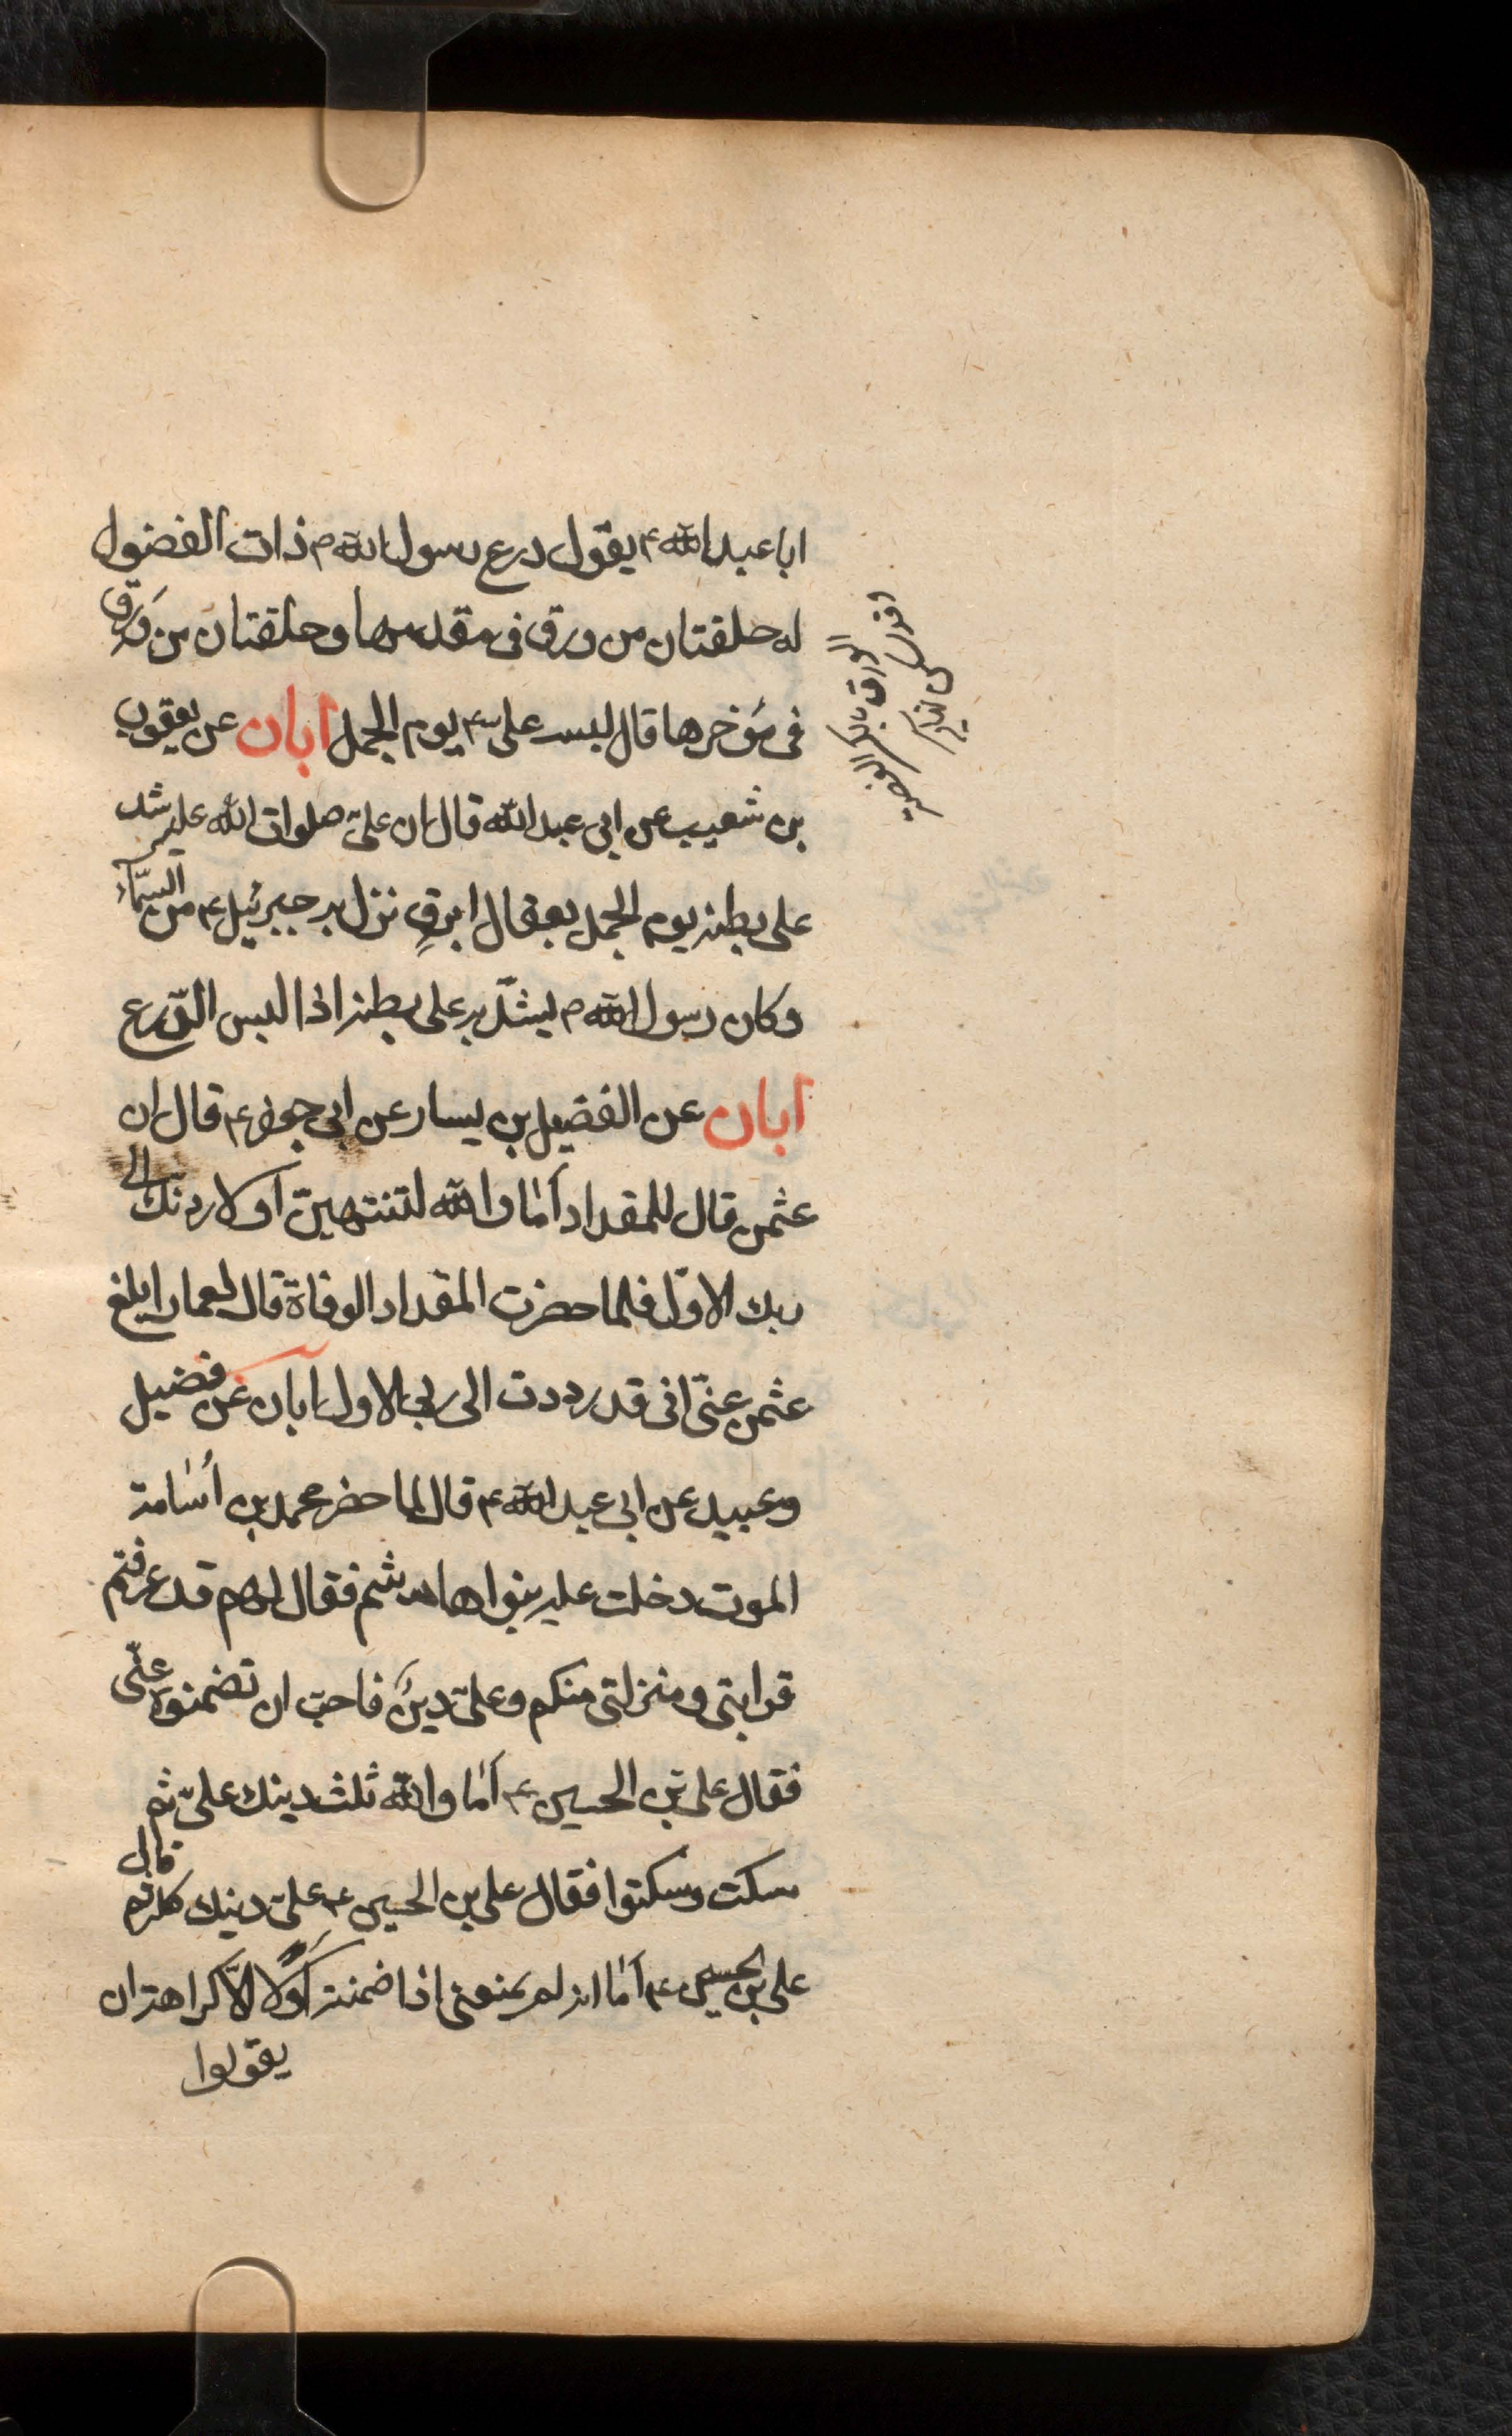 ابا عبد الله ع يقول درع رسول الله ص ذات الفضول
له حلقتان من ورق فى مقدمها وحلقتان من وَرِق
فى مؤخرها قال لبس على ع يوم الجمل ابان عن يعقوب
بن شعيب عن ابى عبد الله قال ان علىّ صلوات الله عليه شد
على بطنه يوم الجمل بعقال ابرقٍ نزل به جبرئيل ع من السّماء
وكان رسول الله ص يشدّ به على بطنه اذا لبس الدّرع
ابان عن الفضيل بن يسار عن ابى جعفر ع قال ان
عثمن قال للمقداد اَمٰا والله لتنتهينّ اَو لاردنك الى
ربك الاوّل فلما حضرت المقداد الوفاة قال لعمار ابلغ
عثمن عنّى انى قد رددت الى ربى الاول ابان عن فضيل
وعبيد عن ابى عبد الله ع قال لما حضر محمد بن اُسٰامة
الموت دخلت عليه بنوا هاشم فقال لهم قد عرفتم
قرابتى ومنزلتى منكم وعلىّ دينٌ فاحبّ ان تضمنوه عنّى
فقال على بن الحسين ع اَمٰا والله ثلث دينك علىّ ثم
سكت وسكتوا فقال على بن الحسين ع علىّ دينك كله ثم قال
على بن الحسين ع اَمٰا انه لم يمنعنى اذا ضمنته اَوّلًا الّا كراهة ان
يقولوا